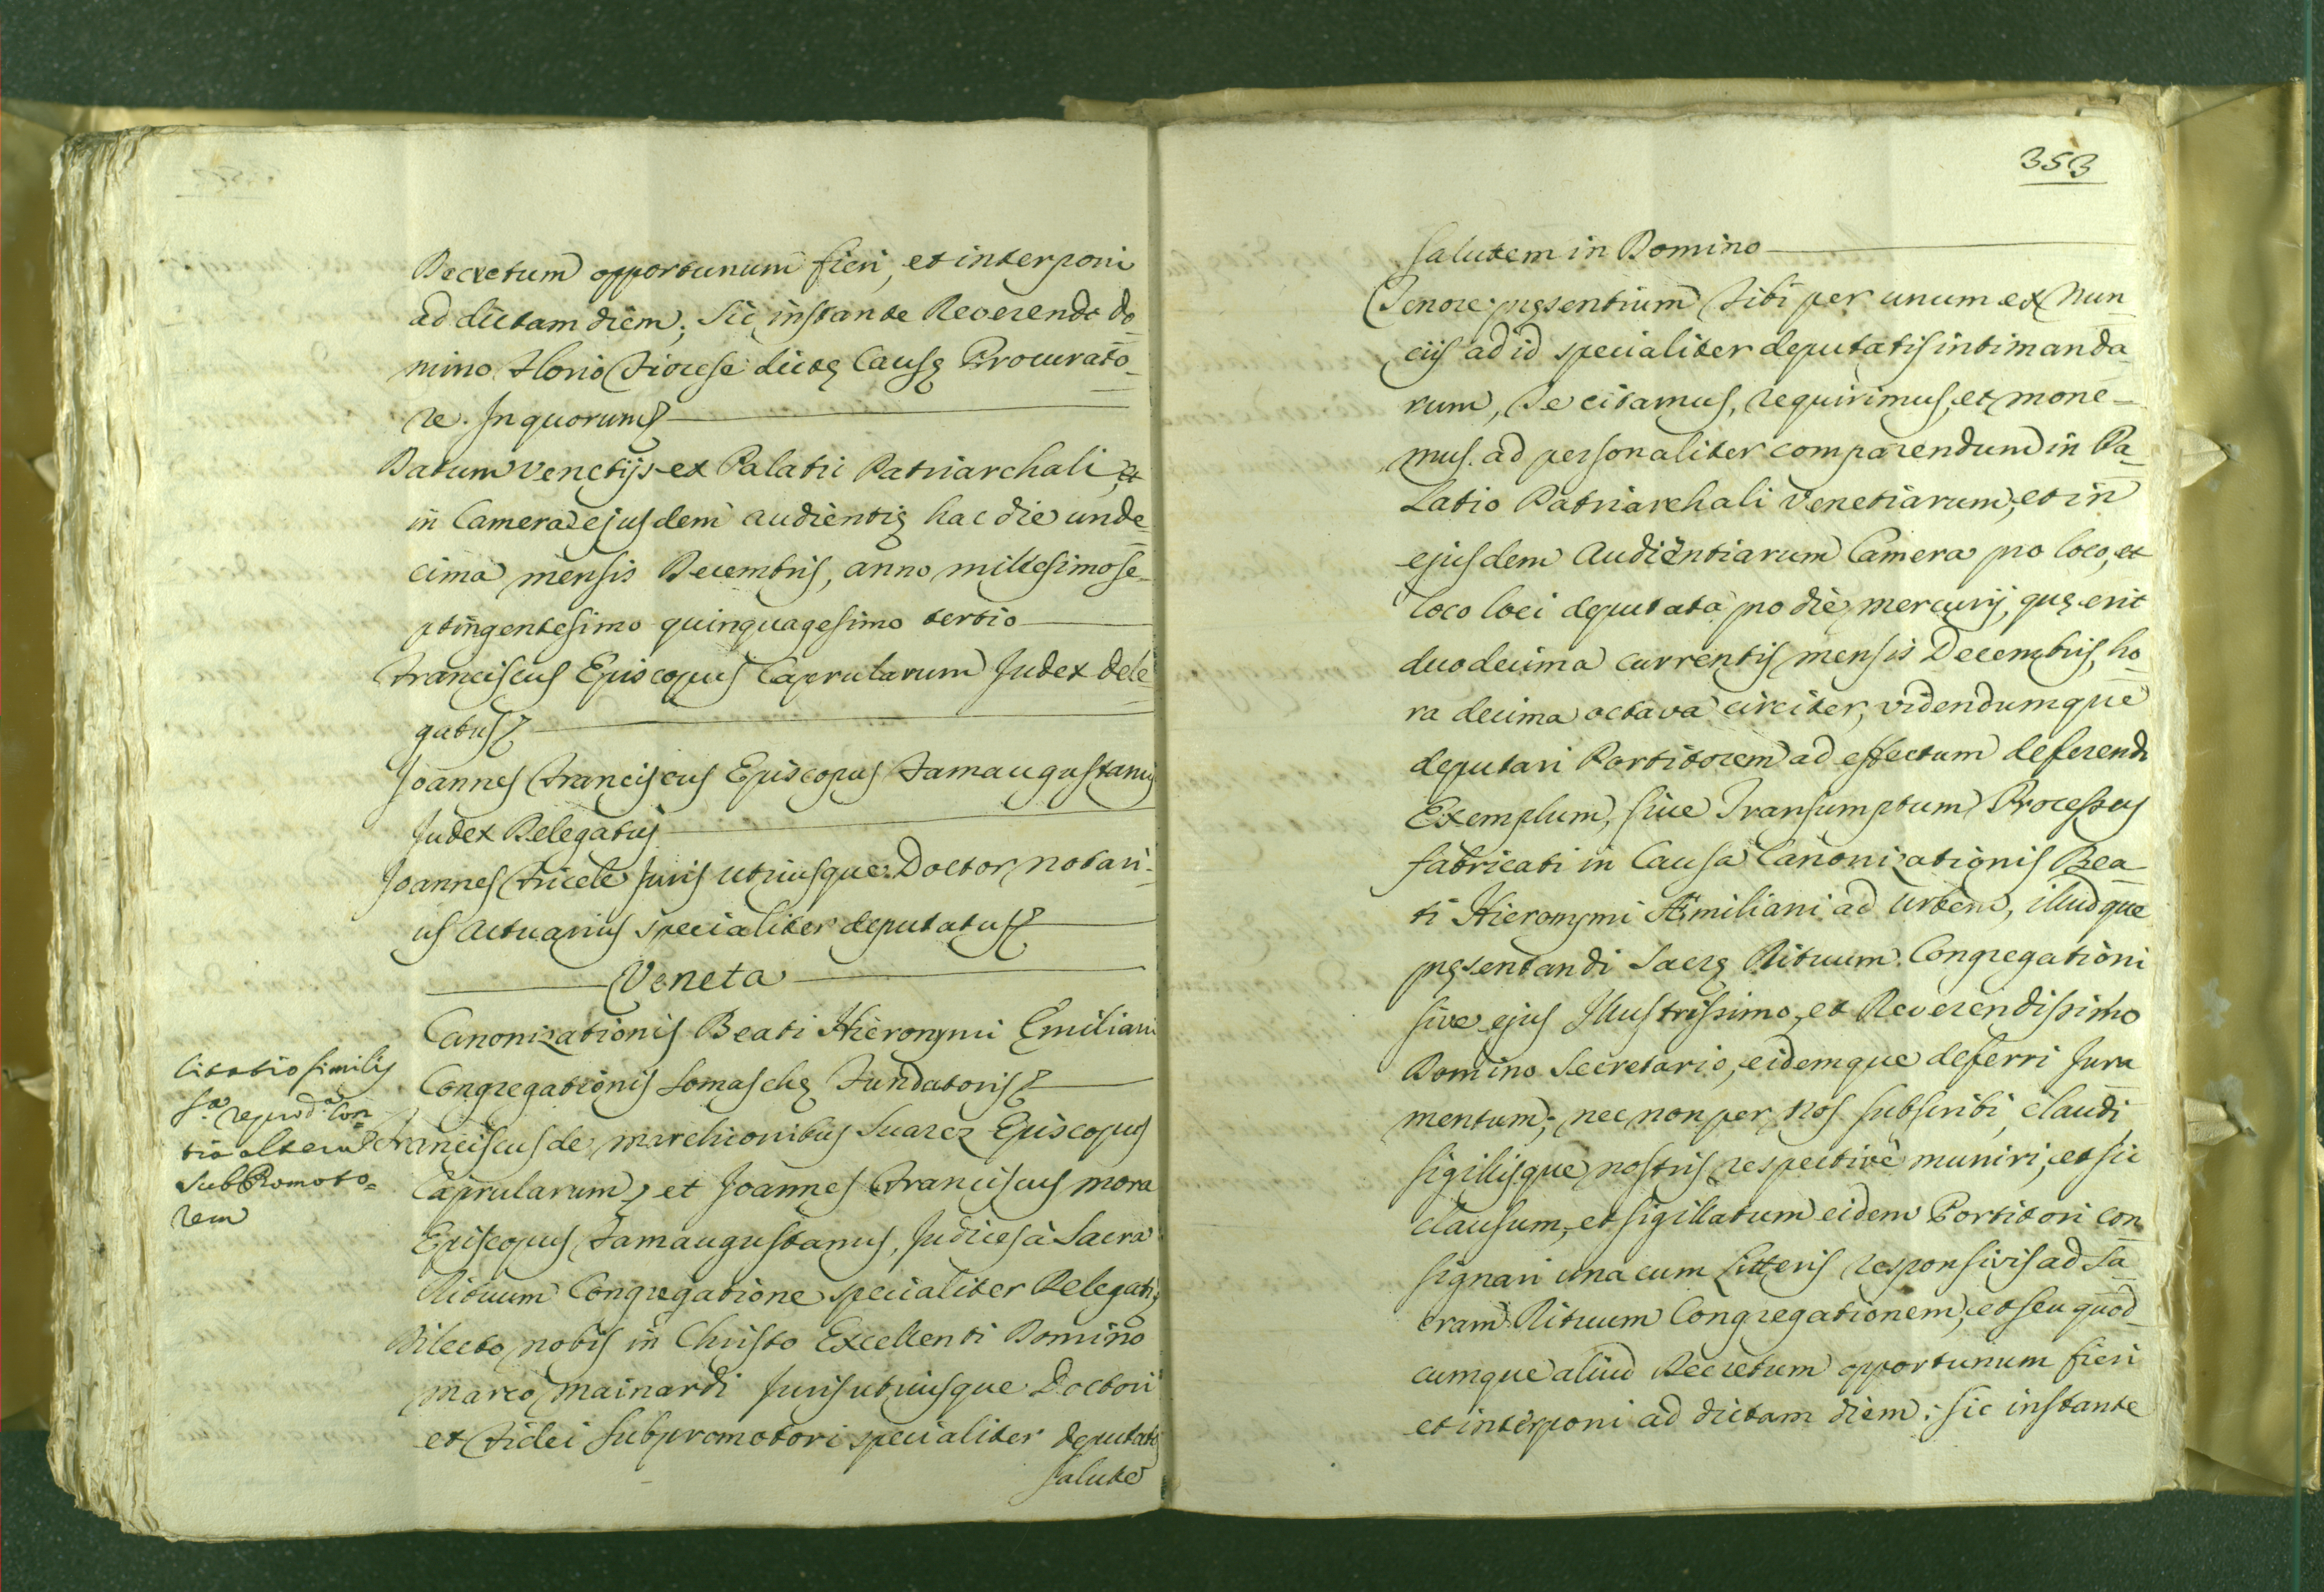 Decretum opportunum fieri, et interponi
ad dictam diem; Sic instante Reverendo Do-
mino Florio Fiorese dictę Causę Procurato-
re. In quorum
Datum Venetijs ex Palatii Patriarchali, et
in Camera ejusdem audientię hac die unde-
cima mensis Decembris, anno millesimo se-
ptingentesimo quinquagesimo tertio
Franciscus Episcopus Caprularum Judex dele-
gatus
Joannes Franciscus Episcopus Famaugustanus
Judex Delegatus
Joannes Juris Utriusque Doctor Notari-
us Actuarius specialiter deputatus
Veneta
Canonizationis Beati Hieronymi Emiliani
Congregationis Somaschę Fundatoris
Citatio similis
reprod.a con
tra alterum
SubPromoto=
rem
Franciscus de Marchionibus Suarez Episcopus
Caprularum, et Joannes Franciscus Mora
Episcopus Famaugustanus, Judices à Sacra
Rituum Congregatione specialiter Delegati,
Dilecto nobis in Christo Excellenti Domino
Marco Mainardi Juris utriusque Doctori
et Fidei Subpromotori specialiter deputato
Salute
353
Salutem in Domino
Tenore pręsentium Tibi per unum ex Nun-
ciis ad id specialiter deputatis intimanda-
rum, Te citamus, requirimus, et mone-
mus ad personaliter comparendum in Pa-
latio Patriarchali Venetiarum, et in
ejusdem Audientiarum Camera pro loco, et
loco loci deputata pro die Mercurij, quę erit
duodecima currentis mensis Decembris, ho-
ra decima octava circiter, videndumque
deputari Portitorem ad effectum deferendi
Exemplum, sive Transumptum Processus
fabricati in Causa Canonizationis Bea-
ti Hieronymi Æmiliani ad Urbem, illudque
pręsentandi Sacrę Rituum Congregationi
sive ejus Illustrissimo, et Reverendissimo
Domino Secretario, eidemque deferri Jura
mentum; nec non per Nos subscribi, claudi,
sigillisque nostris respective muniri, et sic
clausum, et sigillatum eidem Portitori con-
signari una cum Litteris responsivis ad Sa-
cram Rituum Congregationem, et seu quod-
cumque aliud Decretum opportunum fieri
et interponi ad dictam diem: sic instante